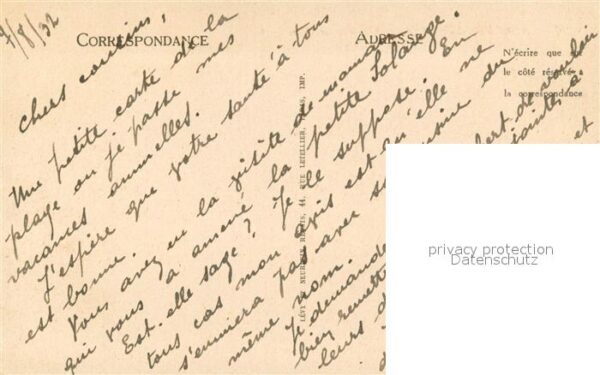 7/8/32
CORRESPONDANCE
ADRESSE
N'écrire que sur
le côté réservé à
la correspondance
LÉVY ET NEURDEIN RÉUNIS, 44, RUE LETELLIER, PARIS, IMP.
Chers cousins,
Une petite carte de la
plage où je passe mes
vacances annuelles.
J'espère que votre santé à tous
est bonne.
Vous avez eu la visite de maman
qui vous a amené la petite Solange.
Est-elle sage? Je le suppose. En
tous cas mon avis est qu'elle ne
s'ennuiera pas avec sa cousine du
même nom.
Je demande de vouloir
bien remettre jointes à
leurs et
privacy protection
Datenschutz